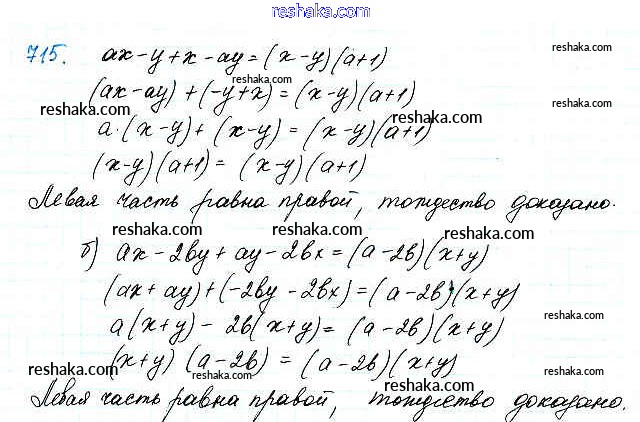 reshaka.com
715. ax-y+x-ay=(x-y)(a+1)
reshaka.com
reshaka.com
(ax-ay)+(-y+x)=(x-y)(a+1)
reshaka.com
reshaka.com
reshaka.com
a·(x-y)+(x-y)=(x-y)(a+1)
(x-y)(a+1)=(x-y)(a+1)
reshaka.com
Левая часть равна правой, тождество доказано.
reshaka.com
reshaka.com
б) ax-2by+ay-2bx=(a-2b)(x+y)
reshaka.com
(ax+ay)+(-2by-2bx)=(a-2b)(x+y)
reshaka.com
reshaka.com
a(x+y)-2b(x+y)=(a-2b)(x+y)
reshaka.com
(x+y)(a-2b)=(a-2b)(x+y)
reshaka.com
reshaka.com
reshaka.com
reshaka.com
Левая часть равна правой, тождество доказано.